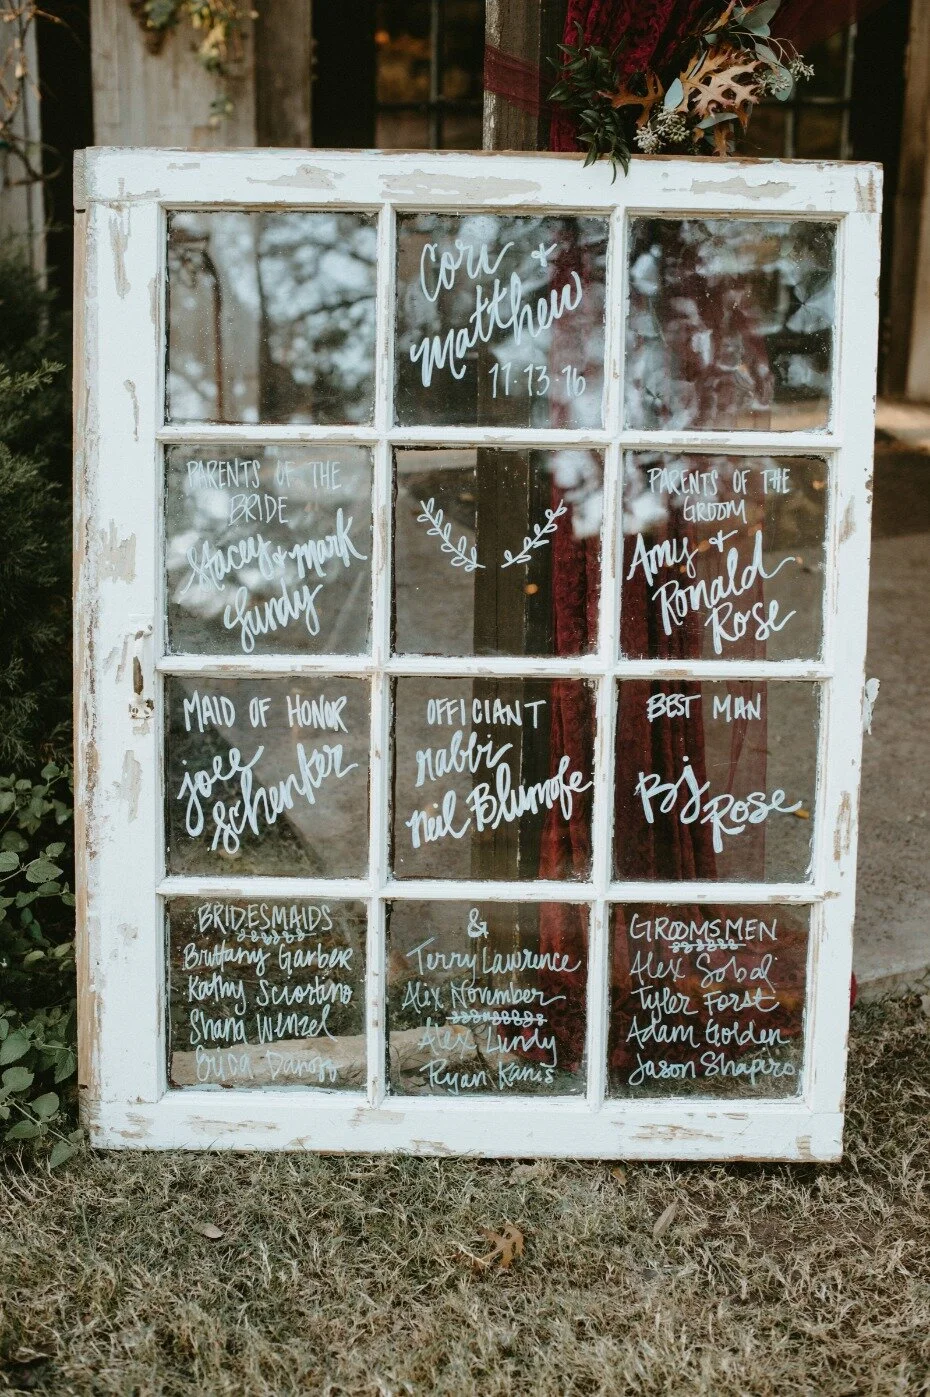 Cori &
Matthew
11·13·16
PARENTS OF THE
BRIDE
Stacey & Mark
Lundy
PARENTS OF THE
GROOM
Amy &
Ronald
Rose
MAID OF HONOR
Joee
Schenker
OFFICIANT
Rabbi
Neil Blumofe
BEST MAN
BJ
Rose
BRIDESMAIDS
Brittany Garber
Kathy Sciortino
Shana Wenzel
Erica
&
Terry Lawrence
Alix November
Alex Lundy
Ryan Kanis
GROOMSMEN
Alex Sobol
Tyler Forst
Adam Golden
Jason Shapiro